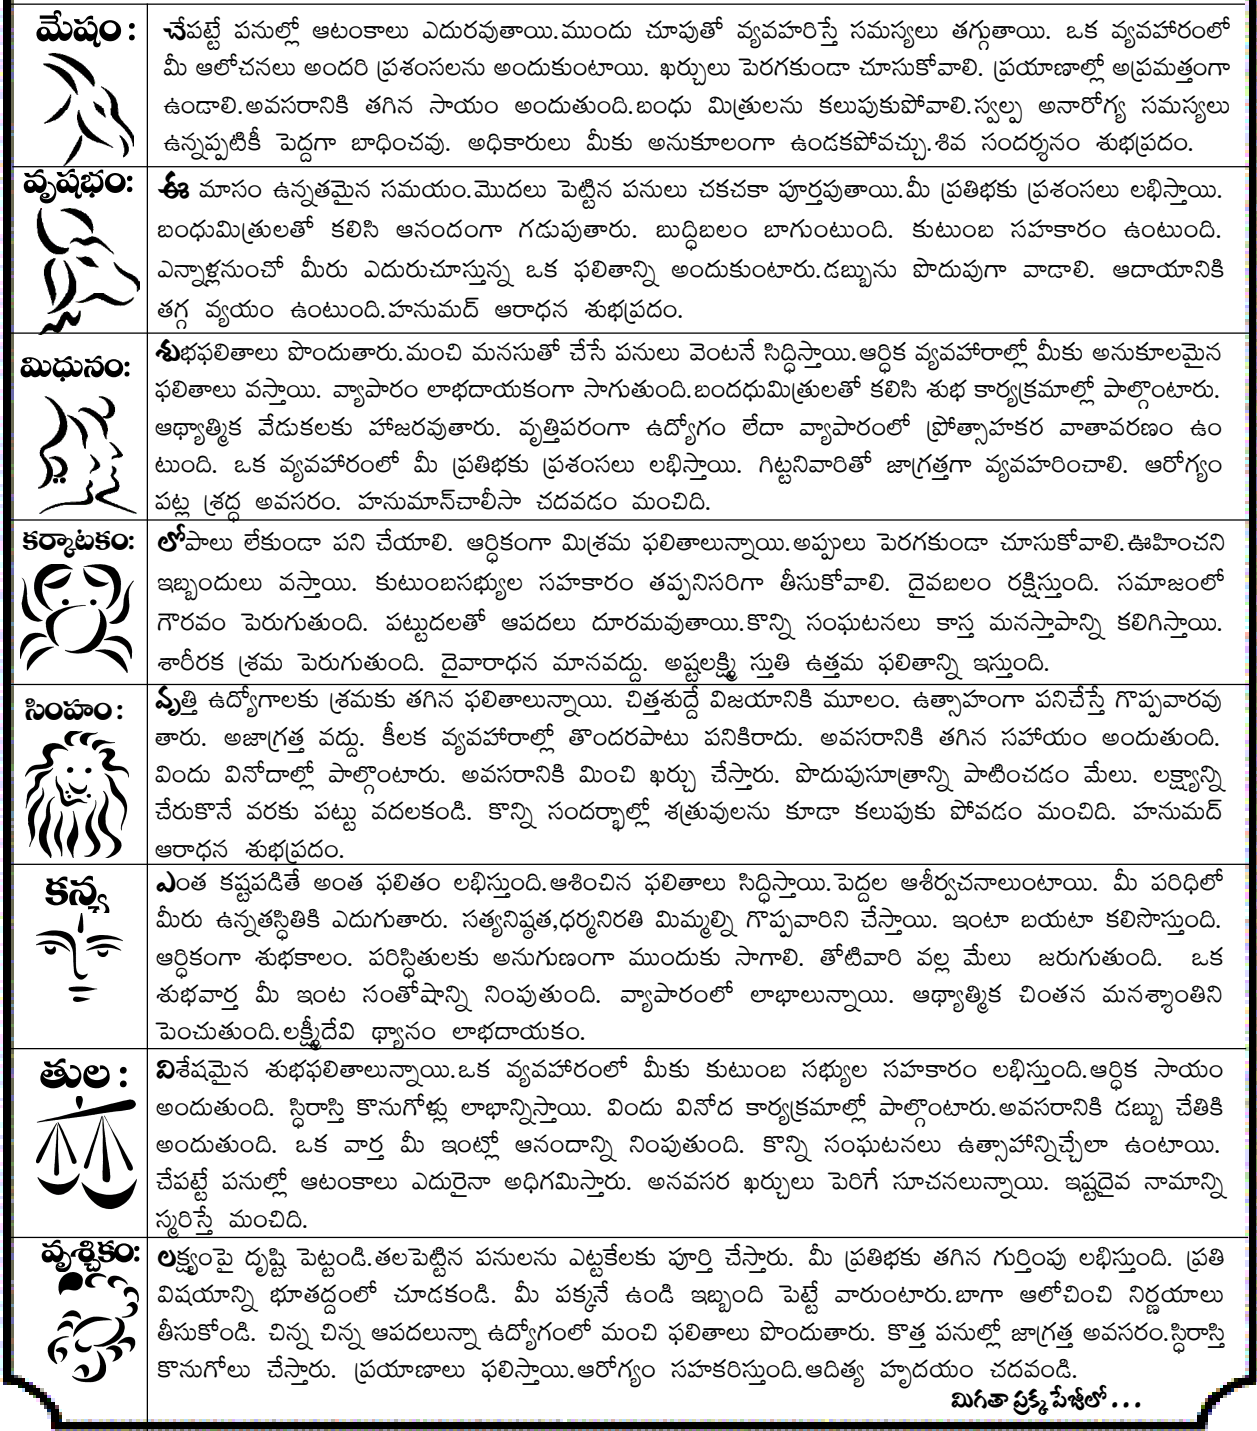 మేషం :
చేపట్టే పనుల్లో ఆటంకాలు ఎదురవుతాయి.ముందు చూపుతో వ్యవహరిస్తే సమస్యలు తగ్గుతాయి. ఒక వ్యవహారంలో
మీ ఆలోచనలు అందరి ప్రశంసలను అందుకుంటాయి. ఖర్చులు పెరగకుండా చూసుకోవాలి. ప్రయాణాల్లో అప్రమత్తంగా
ఉండాలి.అవసరానికి తగిన సాయం అందుతుంది.బంధు మిత్రులను కలుపుకుపోవాలి.స్వల్ప అనారోగ్య సమస్యలు
ఉన్నప్పటికీ పెద్దగా బాధించవు. అధికారులు మీకు అనుకూలంగా ఉండకపోవచ్చు.శివ సందర్శనం శుభప్రదం.
వృషభం:
ఈ మాసం ఉన్నతమైన సమయం.మొదలు పెట్టిన పనులు చకచకా పూర్తవుతాయి.మీ ప్రతిభకు ప్రశంసలు లభిస్తాయి.
బంధుమిత్రులతో కలిసి ఆనందంగా గడువుతారు. బుద్ధిబలం బాగుంటుంది. కుటుంబ సహకారం ఉంటుంది.
ఎన్నాళ్లనుంచో మీరు ఎదురుచూస్తున్న ఒక ఫలితాన్ని అందుకుంటారు.డబ్బును పొదుపుగా వాడాలి. ఆదాయానికి
తగ్గ వ్యయం ఉంటుంది.హనుమద్ ఆరాధన శుభప్రదం.
మిధునం:
శుభఫలితాలు పొందుతారు.మంచి మనసుతో చేసే పనులు వెంటనే సిద్ధిస్తాయి.ఆర్ధిక వ్యవహారాల్లో మీకు అనుకూలమైన
ఫలితాలు వస్తాయి. వ్యాపారం లాభదాయకంగా సాగుతుంది.బందధుమిత్రులతో కలిసి శుభ కార్యక్రమాల్లో పాల్గొంటారు.
ఆథ్యాత్మిక వేడుకలకు హాజరవుతారు. వృత్తిపరంగా ఉద్యోగం లేదా వ్యాపారంలో ప్రోత్సాహకర వాతావరణం ఉం
టుంది. ఒక వ్యవహారంలో మీ ప్రతిభకు ప్రశంసలు లభిస్తాయి. గిట్టనివారితో జాగ్రత్తగా వ్యవహరించాలి. ఆరోగ్యం
పట్ల శ్రద్ధ అవసరం. హనుమాన్‌చాలీసా చదవడం మంచిది.
కర్కాటకం:
లోపాలు లేకుండా పని చేయాలి. ఆర్ధికంగా మిశ్రమ ఫలితాలున్నాయి.అప్పులు పెరగకుండా చూసుకోవాలి.ఊహించని
ఇబ్బందులు వస్తాయి. కుటుంబసభ్యుల సహకారం తప్పనిసరిగా తీసుకోవాలి. దైవబలం రక్షిస్తుంది. సమాజంలో
గౌరవం పెరుగుతుంది. పట్టుదలతో ఆపదలు దూరమవుతాయి.కొన్ని సంఘటనలు కాస్త మనస్తాపాన్ని కలిగిస్తాయి.
శారీరక శ్రమ పెరుగుతుంది. దైవారాధన మానవద్దు. అష్టలక్ష్మి స్తుతి ఉత్తమ ఫలితాన్ని ఇస్తుంది.
సింహం :
వృత్తి ఉద్యోగాలకు శ్రమకు తగిన ఫలితాలున్నాయి. చిత్తశుద్దే విజయానికి మూలం. ఉత్సాహంగా పనిచేస్తే గొప్పవారవు
తారు. అజాగ్రత్త వద్దు. కీలక వ్యవహారాల్లో తొందరపాటు పనికిరాదు. అవసరానికి తగిన సహాయం అందుతుంది.
విందు వినోదాల్లో పాల్గొంటారు. అవసరానికి మించి ఖర్చు చేస్తారు. పొదుపుసూత్రాన్ని పాటించడం మేలు. లక్ష్యాన్ని
చేరుకొనే వరకు పట్టు వదలకండి. కొన్ని సందర్భాల్లో శత్రువులను కూడా కలుపుకు పోవడం మంచిది. హనుమద్
ఆరాధన శుభప్రదం.
కన్య
ఎంత కష్టపడితే అంత ఫలితం లభిస్తుంది.ఆశించిన ఫలితాలు సిద్ధిస్తాయి.పెద్దల ఆశీర్వచనాలుంటాయి. మీ పరిధిలో
మీరు ఉన్నతస్థితికి ఎదుగుతారు. సత్యనిష్ఠత,ధర్మనిరతి మిమ్మల్ని గొప్పవారిని చేస్తాయి. ఇంటా బయటా కలిసొస్తుంది.
ఆర్ధికంగా శుభకాలం. పరిస్థితులకు అనుగుణంగా ముందుకు సాగాలి. తోటివారి వల్ల మేలు జరుగుతుంది. ఒక
శుభవార్త మీ ఇంట సంతోషాన్ని నింపుతుంది. వ్యాపారంలో లాభాలున్నాయి. ఆథ్యాత్మిక చింతన మనశ్శాంతిని
పెంచుతుంది.లక్ష్మీదేవి థ్యానం లాభదాయకం.
తుల :
విశేషమైన శుభఫలితాలున్నాయి.ఒక వ్యవహారంలో మీకు కుటుంబ సభ్యుల సహకారం లభిస్తుంది.ఆర్ధిక సాయం
అందుతుంది. స్థిరాస్తి కొనుగోళ్లు లాభాన్నిస్తాయి. విందు వినోద కార్యక్రమాల్లో పాల్గొంటారు.అవసరానికి డబ్బు చేతికి
అందుతుంది. ఒక వార్త మీ ఇంట్లో ఆనందాన్ని నింపుతుంది. కొన్ని సంఘటనలు ఉత్సాహాన్నిచ్చేలా ఉంటాయి.
చేపట్టే పనుల్లో ఆటంకాలు ఎదురైనా అధిగమిస్తారు. అనవసర ఖర్చులు పెరిగే సూచనలున్నాయి. ఇష్టదైవ నామాన్ని
స్మరిస్తే మంచిది.
వృశ్చికం:
లక్ష్యంపై దృష్టి పెట్టండి.తలపెట్టిన పనులను ఎట్టకేలకు పూర్తి చేస్తారు. మీ ప్రతిభకు తగిన గుర్తింపు లభిస్తుంది. ప్రతి
విషయాన్ని భూతద్దంలో చూడకండి. మీ పక్కనే ఉండి ఇబ్బంది పెట్టే వారుంటారు.బాగా ఆలోచించి నిర్ణయాలు
తీసుకోండి. చిన్న చిన్న ఆపదలున్నా ఉద్యోగంలో మంచి ఫలితాలు పొందుతారు. కొత్త పనుల్లో జాగ్రత్త అవసరం.స్థిరాస్తి
కొనుగోలు చేస్తారు. ప్రయాణాలు ఫలిస్తాయి.ఆరోగ్యం సహకరిస్తుంది.ఆదిత్య హృదయం చదవండి.
మిగతా ప్రక్క పేజీలో . . .